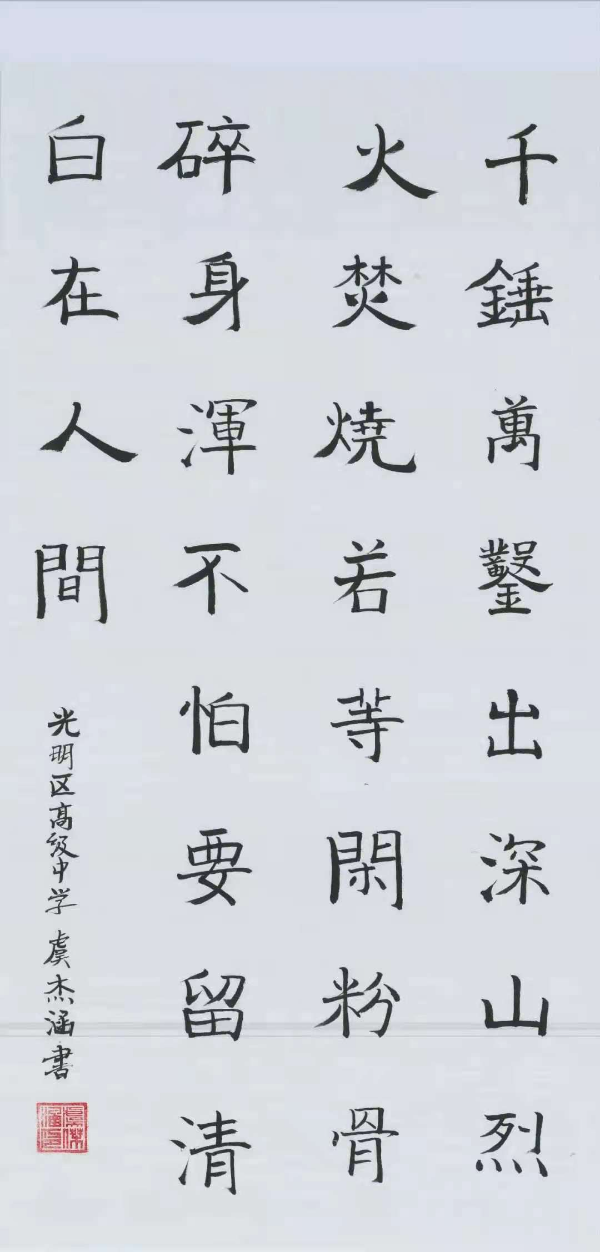 千錘萬鑿出深山烈
火焚燒若等閑粉骨
碎身渾不怕要留清
白在人間
光明区高级中学 虞杰涵書